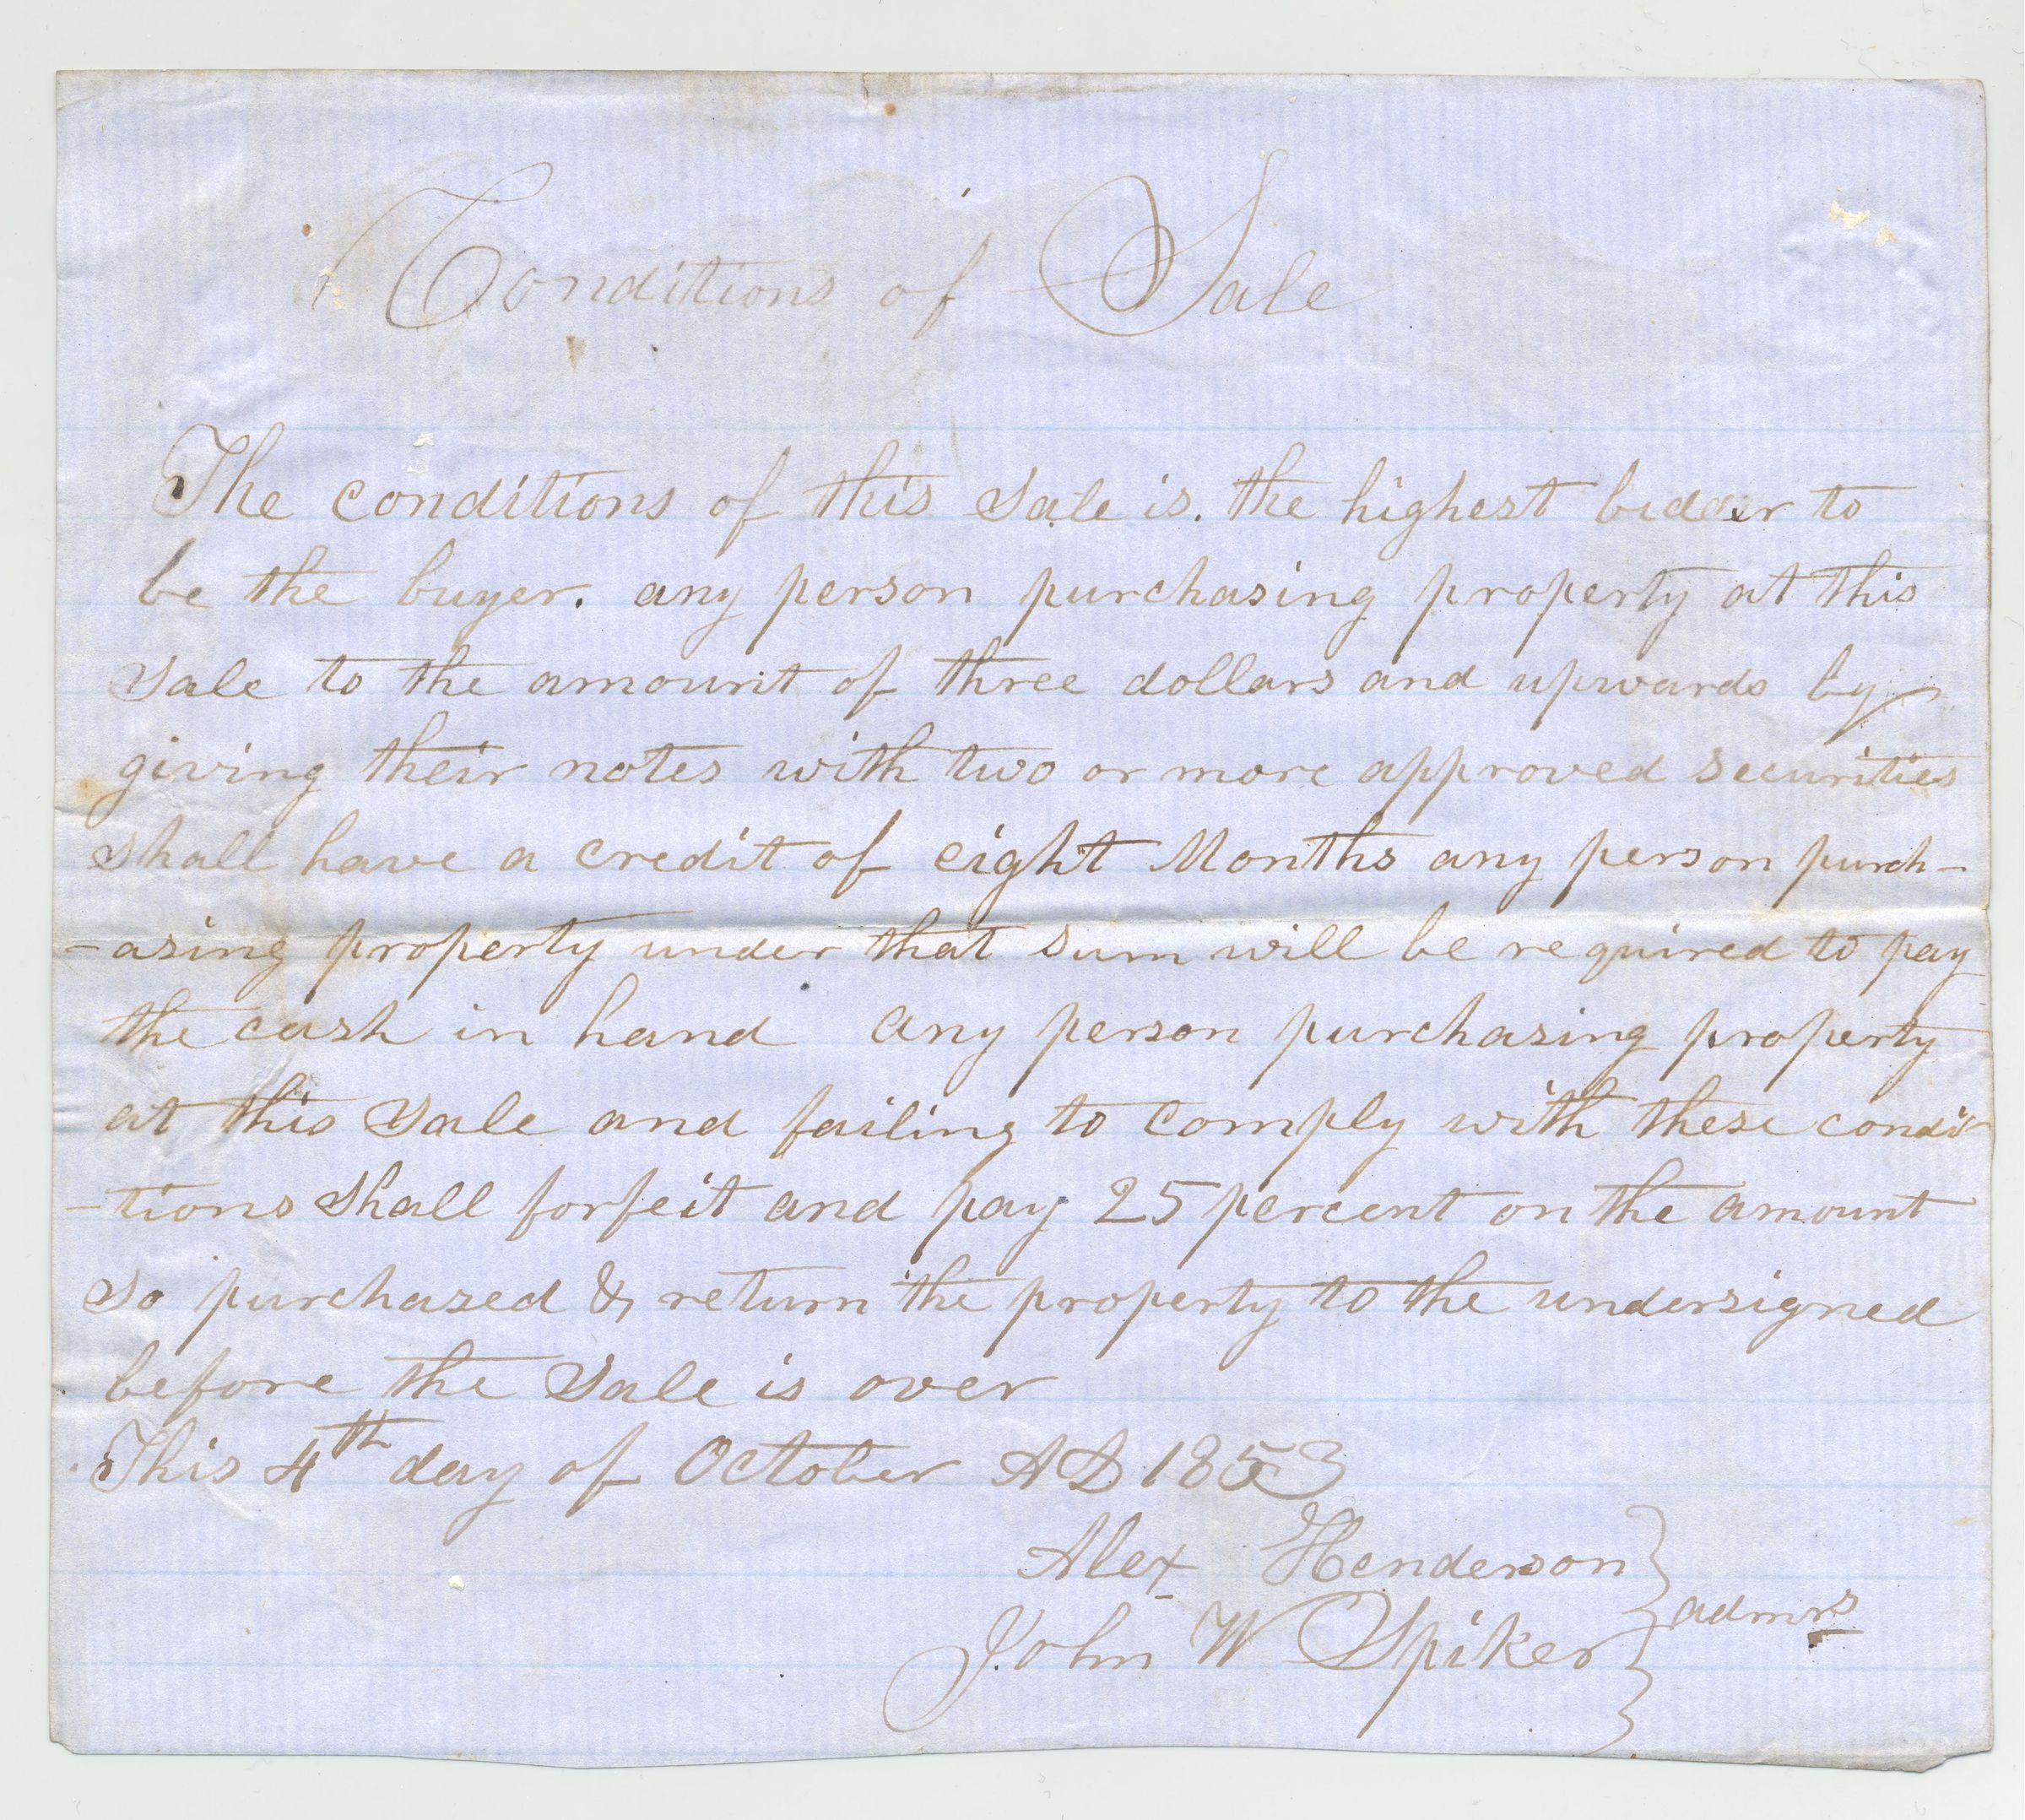 Conditions of Sale
The conditions of this Sale is. the highest bidder to
be the buyer. any person purchasing property at this
Sale to the amount of three dollars and upwards by
giving their notes with two or more approved securities
shall have a credit of eight Months any person purch-
-asing property under that sum will be required to pay
the cash in hand any person purchasing property
at this Sale and failing to comply with these condi-
-tions Shall forfeit and pay 25 percent on the amount
so purchased & return the property to the undersigned
before the Sale is over
This 4th day of October AD 1853
Alex Henderson
John W Spiker
admrs